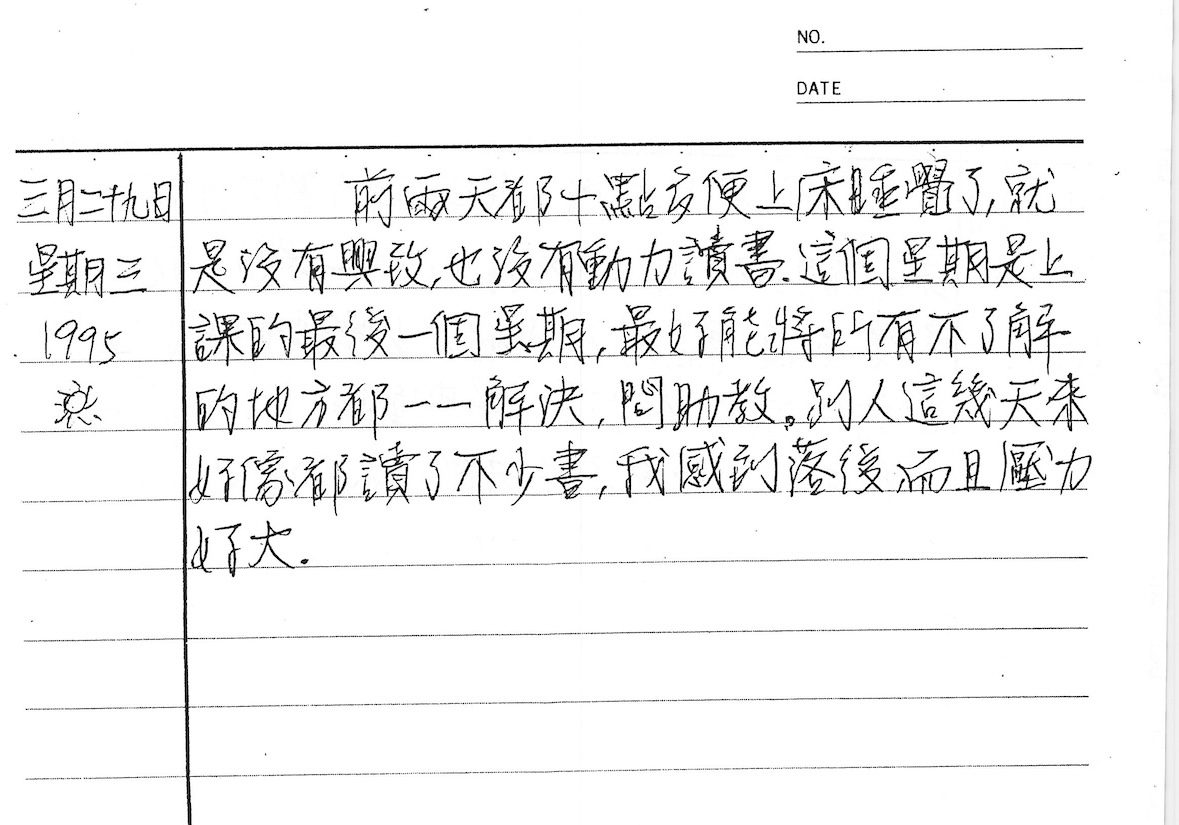 NO.
DATE
三月二十九日
星期三
1995
前兩天都十點多便上床睡覺了,就
是沒有興致,也沒有動力讀書.這個星期是上
課的最後一個星期,最好能將所有不了解
的地方都一一解決,問助教。別人這幾天來
好像都讀了不少書,我感到落後而且壓力
好大.